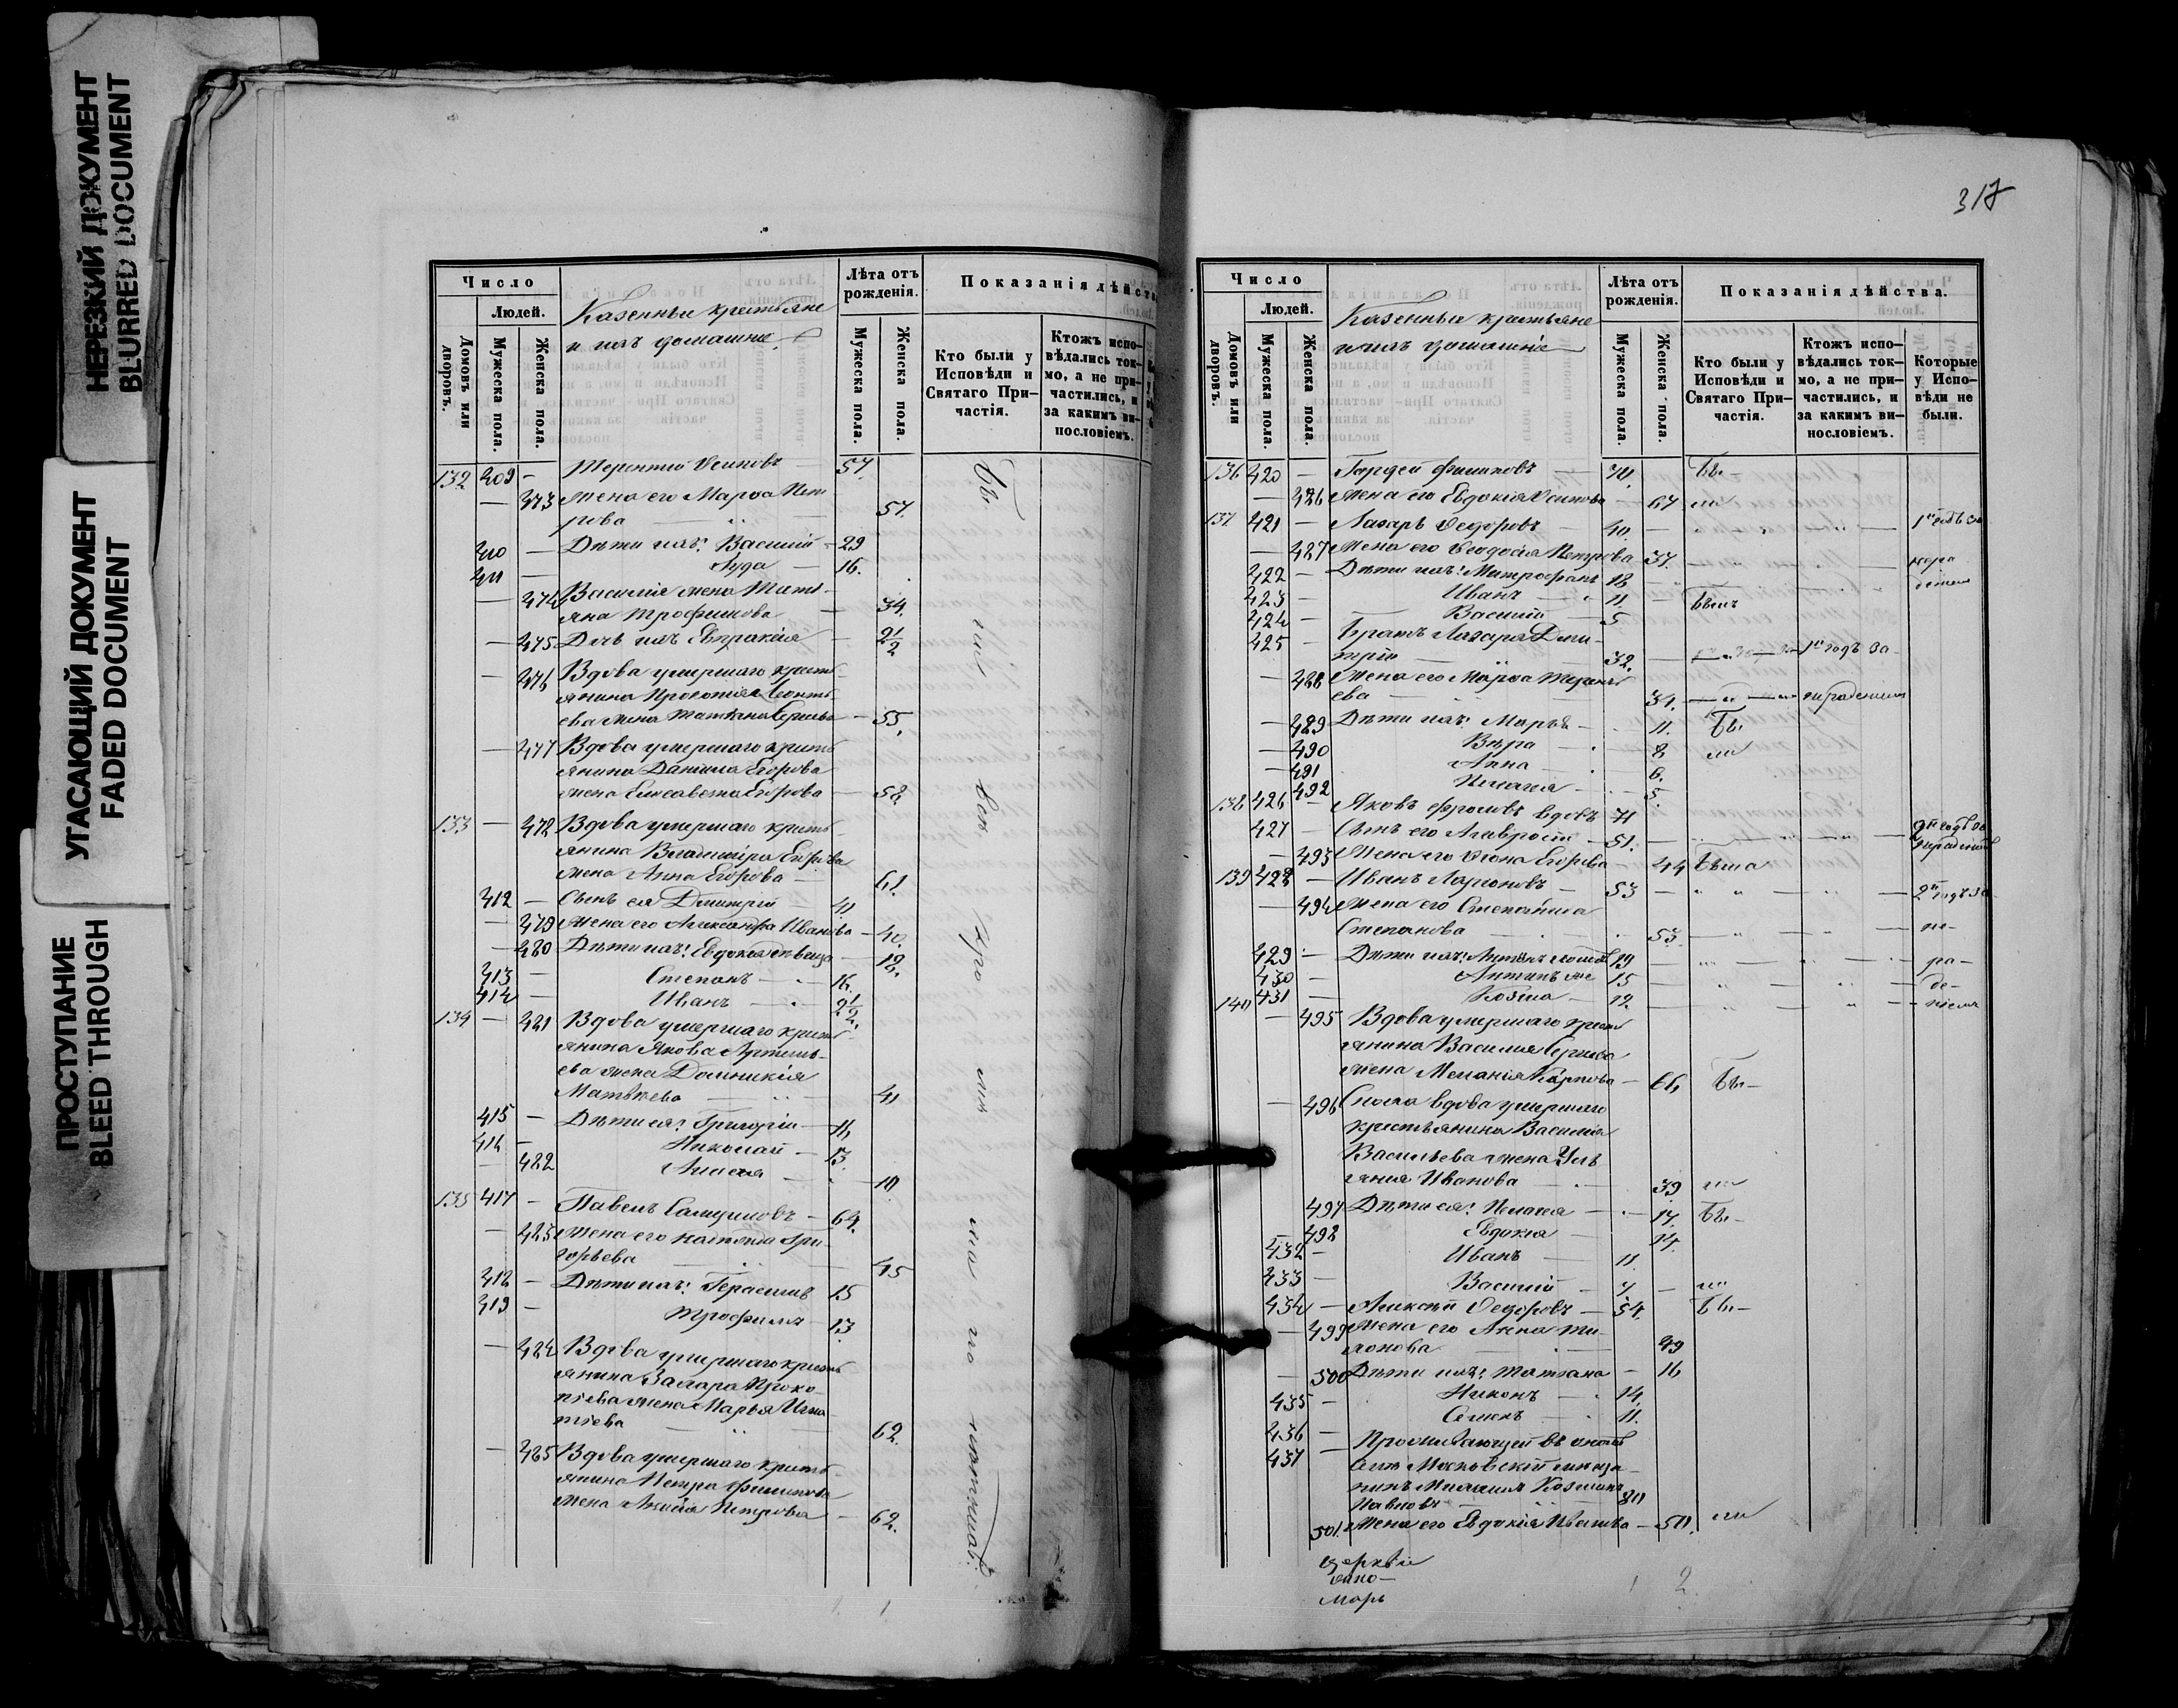 НЕРЕЗКИЙ ДОКУМЕНТ
BLURRED DOCUMENT
УГАСАЮЩИЙ ДОКУМЕНТ
FADED DOCUMENT
ПРОСТУПАНИЕ
BLEED THROUGH
Число
Людей.
Домовъ или дворовъ.
Мужеска пола.
Женска пола.
Казенныи крестьяне
и ихъ домашніе
Лѣта отъ рожденія.
Мужеска пола.
Женска пола.
Показанія дѣйств
Кто были у Исповѣди и Святаго Причастія.
Ктожъ исповѣдались токмо, а не причастились, и за какимъ винословіемъ.
132 409 — Терентій Осиповъ — 57.
— 473 Жена его Марѳа Пет
рова — 57.
410 — Дѣти ихъ: Василій — 29
411 — Іуда — 16.
— 474 Василія жена Тать
яна Трофимова — 34.
— 475 Дочь ихъ Евпраксія — 2½
— 476 Вдова умершаго кресть
янина Прокопія Леонть
ева жена Татіана Сергѣева — 55.
— 477 Вдова умершаго кресть
янина Даніила Егорова
жена Елисавета Егорова — 58.
133 — 478 Вдова умершаго кресть
янина Владиміра Егорова
жена Анна Егорова — 61.
412 — Сынъ ея Дмитрій — 41
— 479 Жена его Александра Иванова — 40.
— 480 Дѣти ихъ: Евдокія дѣвица — 18.
413 — Степанъ — 16.
414 — Иванъ — 2½.
134 — 481 Вдова умершаго кресть
янина Якова Артемь
ева жена Домникія
Матвѣева — 41
415 — Дѣти ея: Григорій — 16
416 — Николай — 13.
— 482 — 10
135 417 — Павелъ Самуиловъ — 64.
— 483 Жена его Гри
горьева — 45
418 — Дѣти ихъ: Герасимъ 15
419 — Трофимъ — 13.
— 484 Вдова умершаго кресть
янина Проко
піева жена Марья Игна
тіева — 62.
— 485 Вдова умершаго кресть
янина Петра Филипова
жена Петрова — 62.
317
Число
Людей.
Домовъ или дворовъ.
Мужеска пола.
Женска пола.
Казенныи крестьяне
и ихъ домашніе
Лѣта отъ рожденія.
Мужеска пола.
Женска пола.
Показанія дѣйства.
Кто были у Исповѣди и Святаго Причастія.
Ктожъ исповѣдались токмо, а не причастились, и за какимъ винословіемъ.
Которые у Исповѣди не были.
136 420 — Гордей Филиповъ — 70. Бы-
— 486 Жена его Евдокія Осипова — 67 ли
137 421 — Лазарь Ѳедоровъ — 40. 1й годъ за
— 487 Жена его Ѳеодосія Петрова 37. нера
422 — Дѣти ихъ: Митрофанъ 18 деніем
423 — Иванъ — 11. Былъ
424 — Василій — 5
425 — Братъ Лазаря Дми-
трій — 32. 1й годъ за
— 488 Жена его Марѳа Теренть
ева — 31. нерадѣніем
— 489 Дѣти ихъ: Марья — 11. Бы-
— 490 Вѣра — 8 ли
— 491 Анна — 6.
492 Пелагія — 5.
138 426 — Яковъ Фроловъ вдовъ 71
427 — Сынъ его Лаврентій — 51. 2й годъ за
— 493 Жена его Егорова — 44 Была
139 428 — Иванъ Ларіоновъ — 53 — 2й годъ за
— 494 Жена его Степанида
Степанова — 53. — не-
429 — Дѣти ихъ: 19 — ра-
430 — Антипъ 15 — де-
431 — Козма — 12. — ніемъ
140 — 495 Вдова умершаго кресть
янина Василія Сергѣева
жена Меланія Карпова — 66, Бы-
— 496 Сноха вдова умершаго
крестьянина Василія
Васильева жена Уль
яния Иванова — 39 ли
497 Дѣти ея: Пелагія — 17. Бы-
498 Евдокія — 14.
432 — Иванъ — 11.
433 — Василій — 7 — ли
434 — Алексѣй Ѳедоровъ — 54. Бы-
— 499 Жена его Анна Ти-
хонова — 49
— 500 Дѣти ихъ: Татіана — 16
435 — Никонъ — 14.
436 — Семенъ — 11.
437 — Проживающей въ ономъ
селѣ Московскій мѣща-
нинъ Козминъ
Павловъ — 80
501. Жена его Евдокія Иванова — 50. ли
Церкви
поно-
марь
2